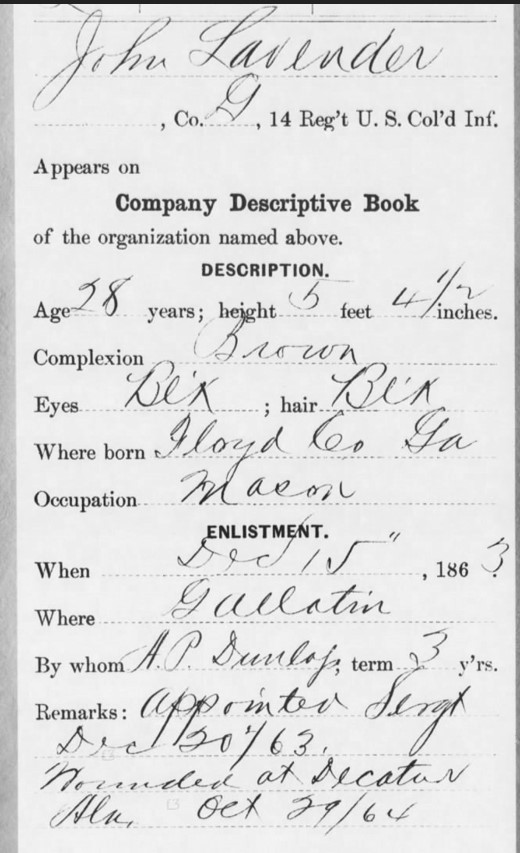 John Lavender
, Co. G, 14 Reg't U. S. Col'd Inf.
Appears on
Company Descriptive Book
of the organization named above.
DESCRIPTION.
Age 28 years; height 5 feet 4 1/2 inches.
Complexion Brown
Eyes Bl'k ; hair Bl'k
Where born Floyd Co Ga
Occupation Mason
ENLISTMENT.
When Dec 15" , 1863.
Where Gallatin
By whom A. P. Dunlap, term 3 y'rs.
Remarks: Appointed Sergt
Dec 20"/63.
Wounded at Decatur
Ala. Oct 29/64